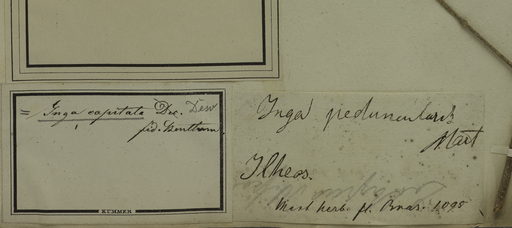 = Inga capitata Dec. Desv
fid. Bentham.
KUMMER
Inga peduncularis
Mart
Ilheos.
Mart herb. fl. Bras. 1095